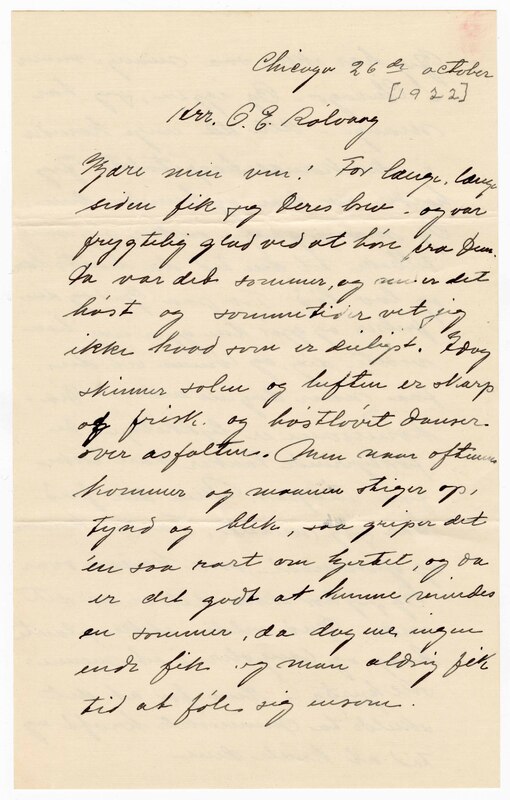 Chicago 26de october
[1922]
Hrr. O. E. Rølvaag
Kjære min ven! For længe, længe
siden fik jeg Deres brev. og var
frygtelig glad ved at høre fra Dem.
Da var det sommer, og nu er det
høst og sommetider vet jeg
ikke hvad som er deiligst. Idag
skinner solen og luften er skarp
og frisk. og høstløvet danser
over asfalten. Men naar aftenen
kommer og maanen stiger op,
tynd og blek, saa griper det
én saa rart om hjertet, og da
er det godt at kunne mindes
en sommer, da dagene ingen
ende fik og man aldrig fik
tid at føle sig ensom.